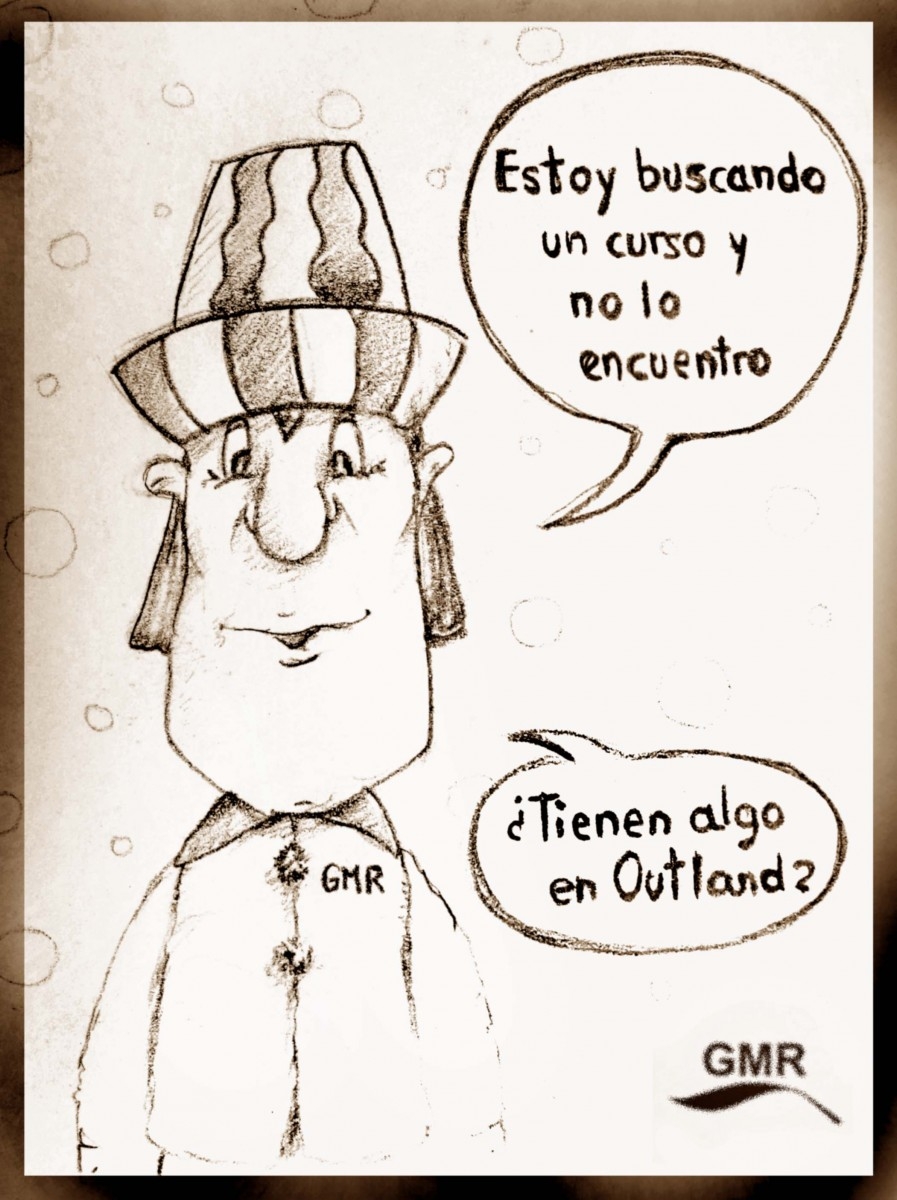 Estoy buscando
un curso y
no lo
encuentro
¿Tienen algo
en Outland?
GMR
GMR